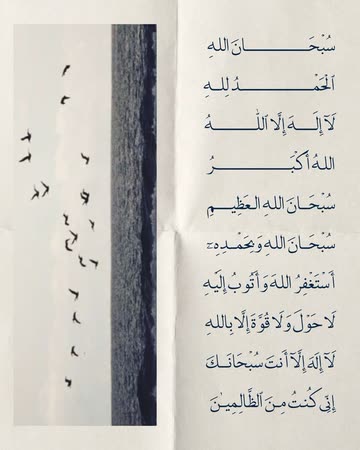 سُبْحَانَ اللهِ
الْحَمْدُ لِلهِ
لَآ إِلَهَ إِلَّا اللهُ
اللهُ أَكْبَرُ
سُبْحَانَ اللهِ العَظِيمِ
سُبْحَانَ اللهِ وَبِحَمْدِهِ
أَسْتَغْفِرُ اللهَ وَأَتُوبُ إِلَيْهِ
لَا حَوْلَ وَلَا قُوَّةَ إِلَّا بِاللهِ
لَآ إِلَهَ إِلَّآ أَنتَ سُبْحَانَكَ
إِنِّي كُنتُ مِنَ الظَّالِمِينَ